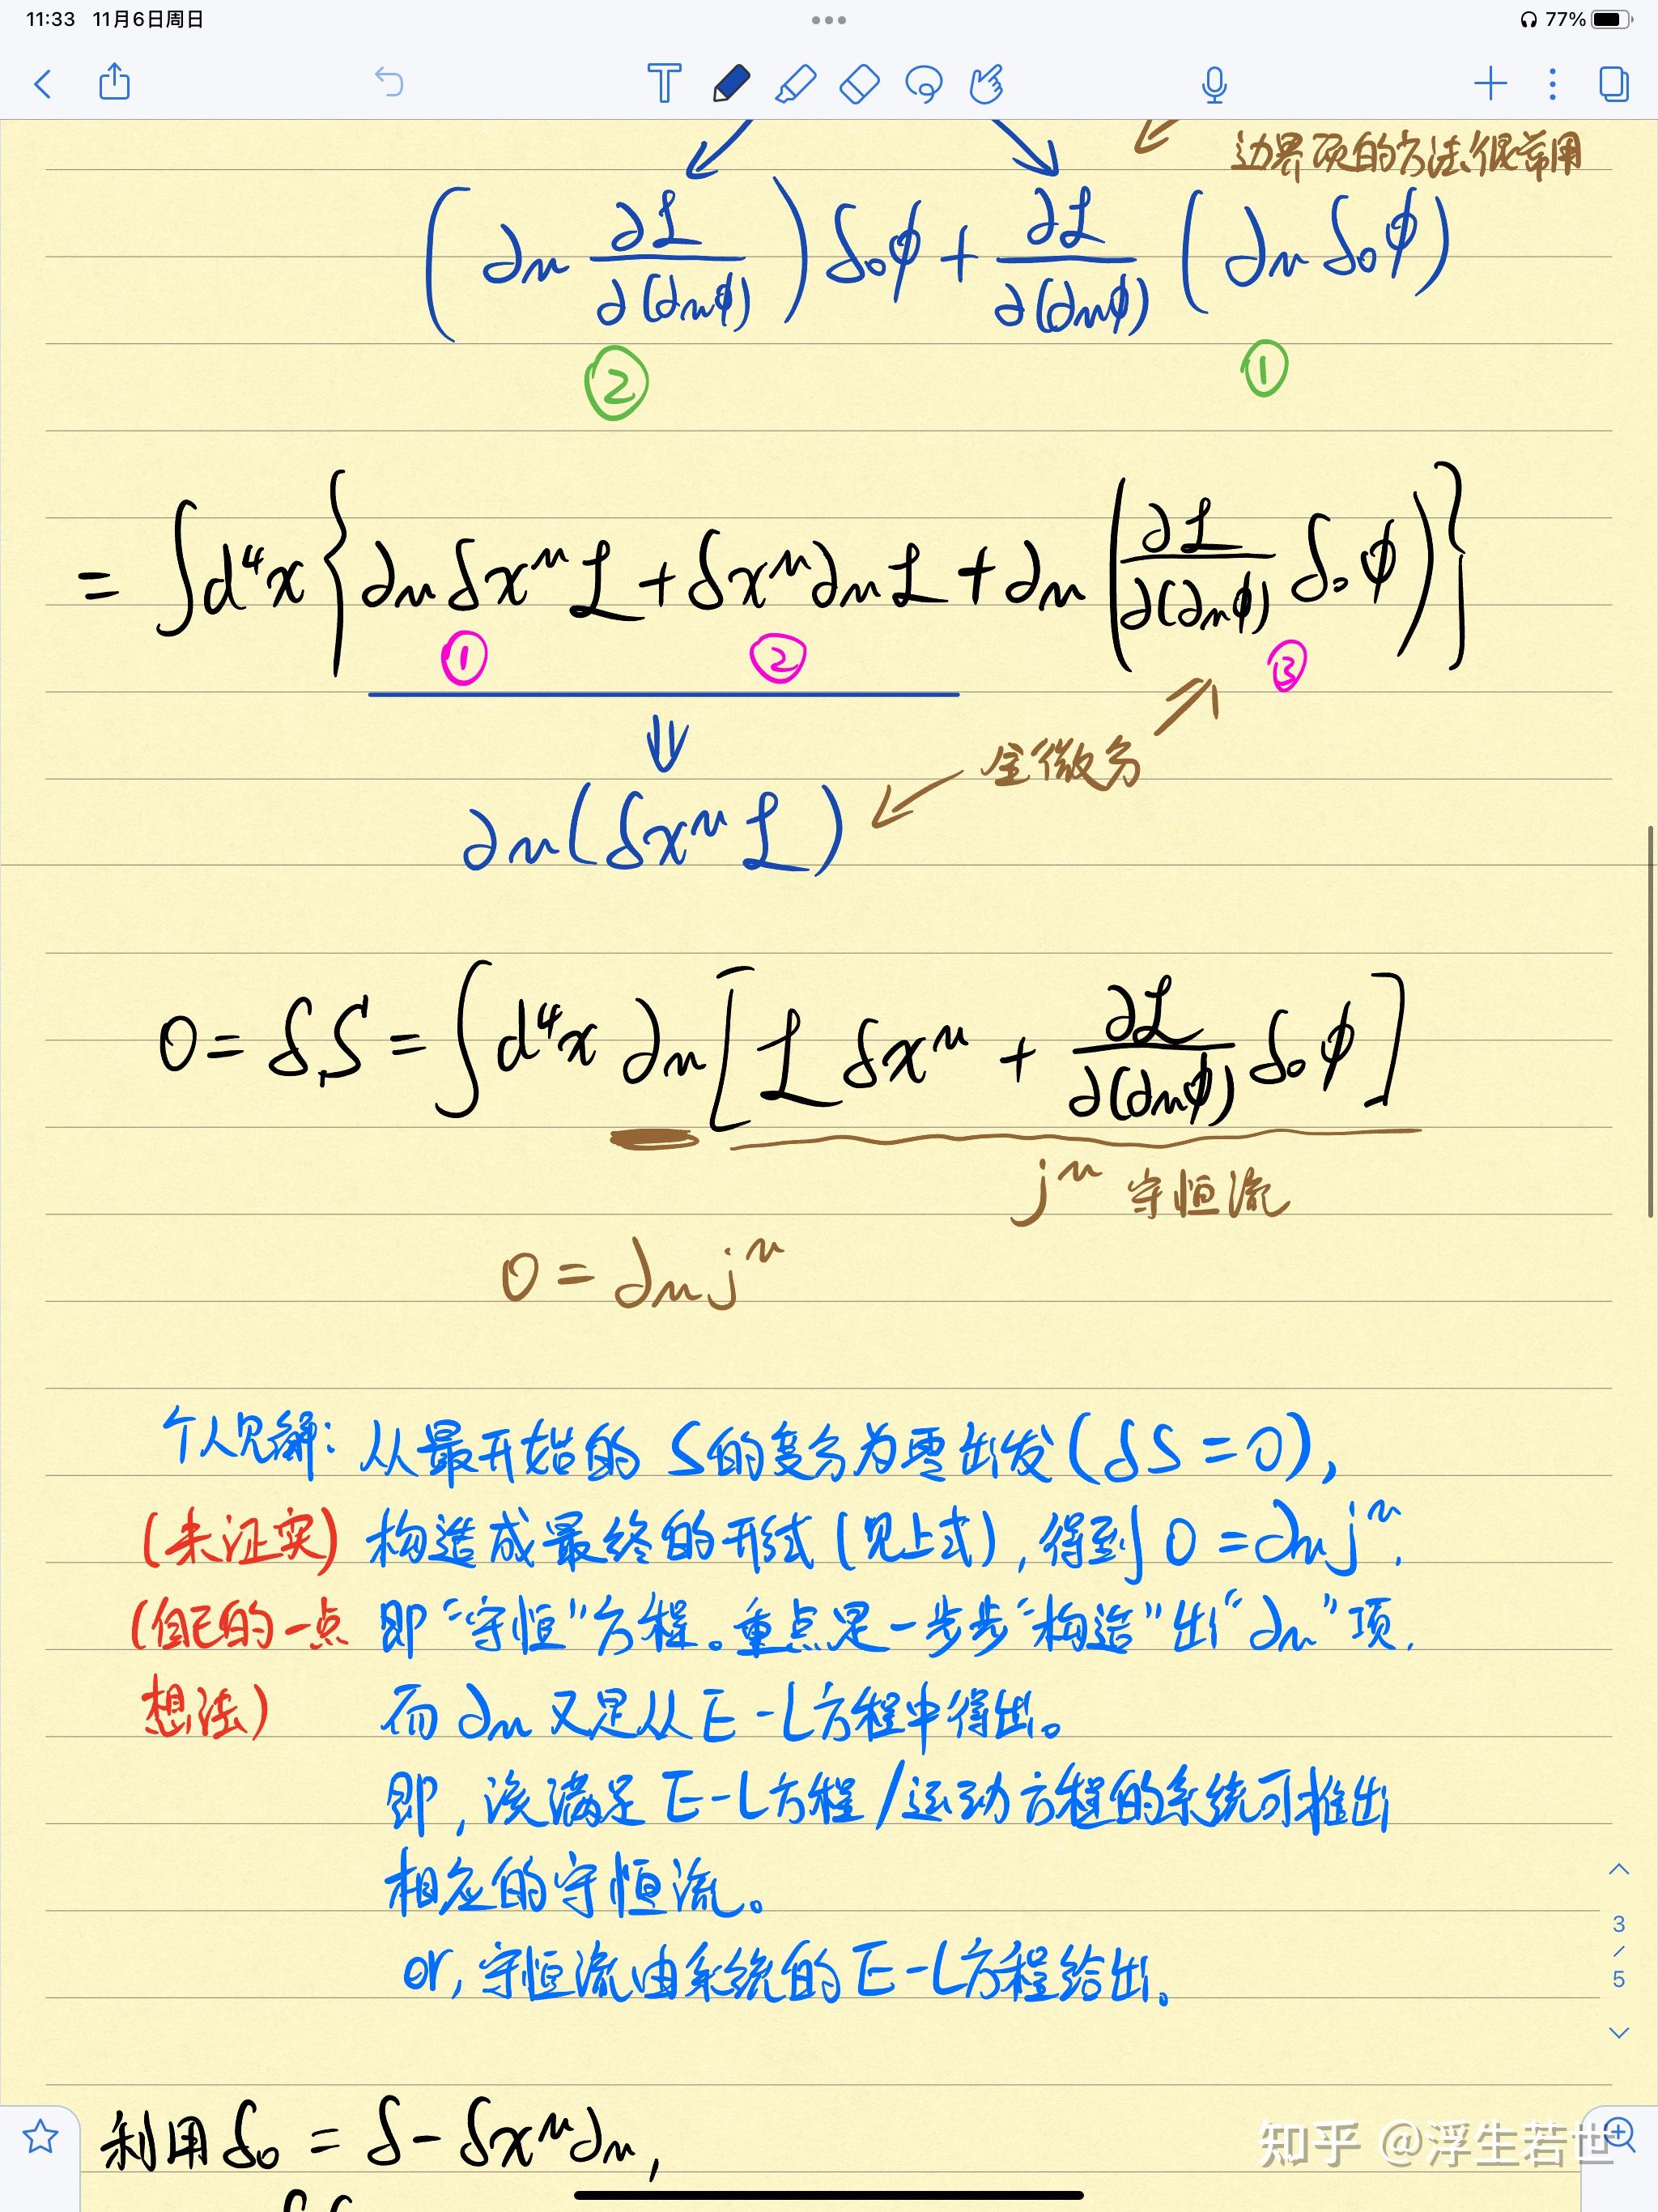 11:33 11月6日周日
77%
边界项的方法很常用
(∂μ ∂ℒ/∂(∂μϕ)) δ₀ϕ + ∂ℒ/∂(∂μϕ) (∂μ δ₀ϕ)
② ①
= ∫d⁴x {∂μ δx^μ ℒ + δx^μ ∂μ ℒ + ∂μ (∂ℒ/∂(∂μϕ) δ₀ϕ)}
① ② ③
⇓
全微分
∂μ(δx^μ ℒ)
0 = δS = ∫d⁴x ∂μ [ℒ δx^μ + ∂ℒ/∂(∂μϕ) δ₀ϕ]
j^μ 守恒流
0 = ∂μ j^μ
个人见解: 从最开始的 S的变分为零出发(δS = 0),
(未证实) 构造成最终的形式(见上式), 得到 0 = ∂μ j^μ,
(自己的一点 即“守恒”方程。重点是一步步“构造”出“∂μ”项,
想法) 而 ∂μ 又是从 E-L方程中得出。
即, 该满足 E-L方程/运动方程的系统可推出
相应的守恒流。
or, 守恒流由系统的 E-L方程给出。
3
/
5
利用 δ₀ = δ - δx^μ ∂μ,
知乎 @浮生若世